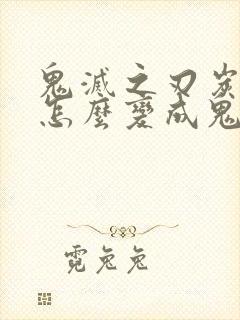 鬼滅之刃炭
怎麼變成鬼
霓兔兔